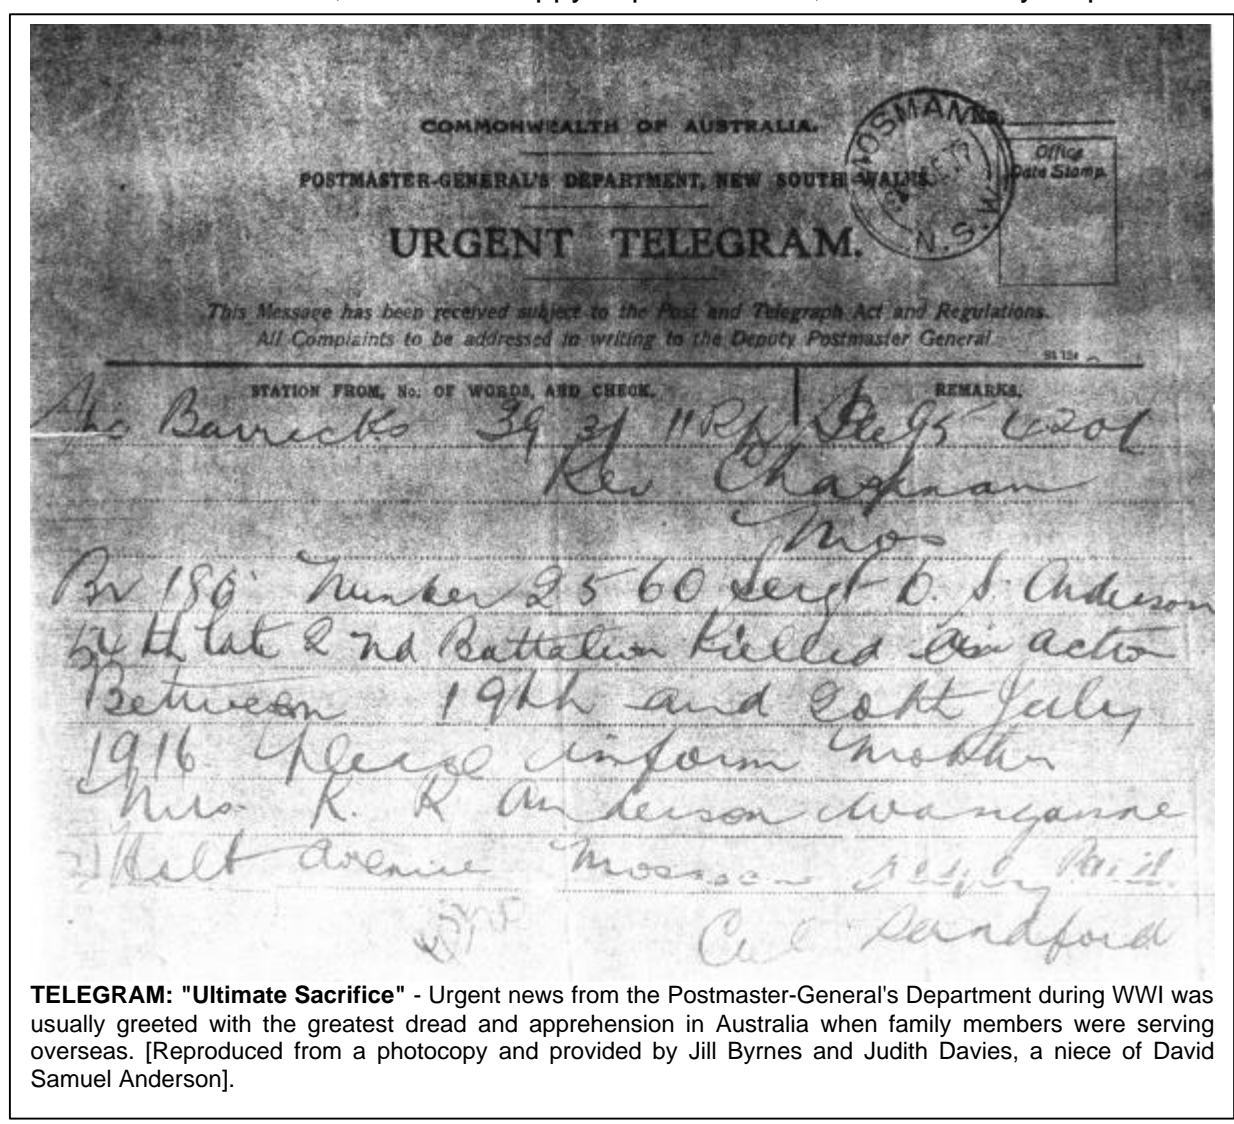 COMMONWEALTH OF AUSTRALIA.
POSTMASTER-GENERAL'S DEPARTMENT, NEW SOUTH WALES.
MOSMAN
N.S.W
Office
Date Stamp.
URGENT TELEGRAM.
This Message has been received subject to the Post and Telegraph Act and Regulations.
All Complaints to be addressed in writing to the Deputy Postmaster General
STATION FROM, No: OF WORDS, AND CHECK. REMARKS.
Barracks 39
Rev Chapman
Mos
Br 186 Number 2560 Sergt D. S. Anderson
54th late 2nd Battalion Killed in action
Between 19th and 20th July
1916 Please inform Mother
Mrs. R. R Anderson
Holt Avenue Mosman Reply Paid.
Col Sandford
TELEGRAM: "Ultimate Sacrifice" - Urgent news from the Postmaster-General's Department during WWI was
usually greeted with the greatest dread and apprehension in Australia when family members were serving
overseas. [Reproduced from a photocopy and provided by Jill Byrnes and Judith Davies, a niece of David
Samuel Anderson].